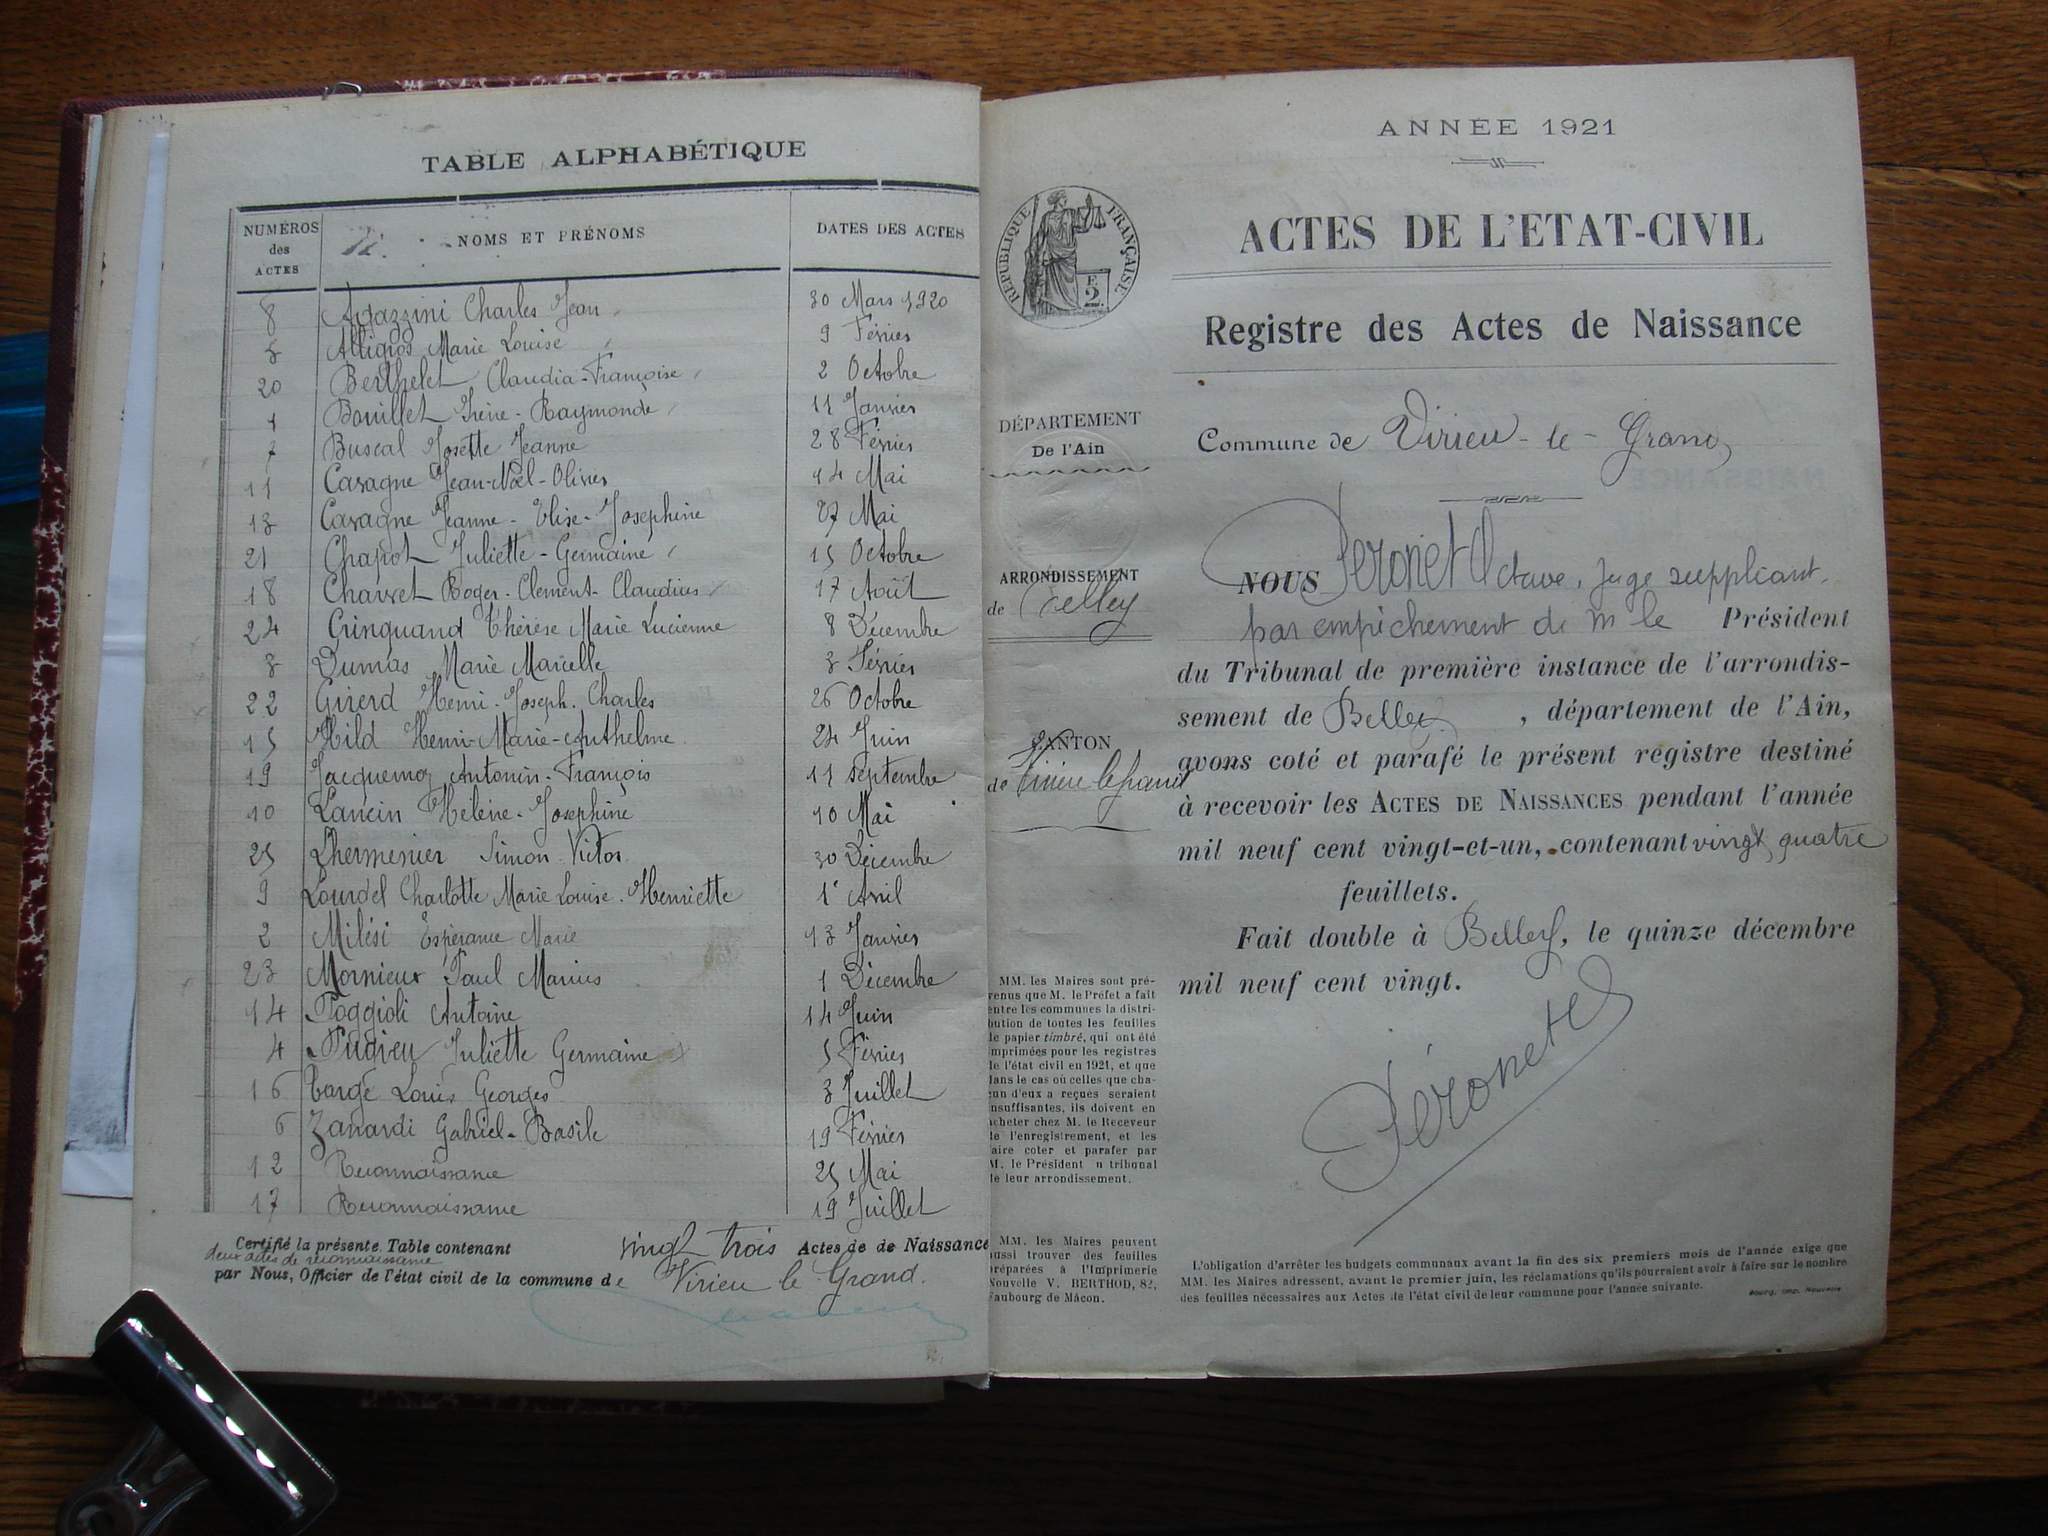 TABLE ALPHABÉTIQUE
NUMÉROS des ACTES NOMS ET PRÉNOMS DATES DES ACTES
8 Agazzini Charles Jean 30 Mars 1920
Alligros Marie Louise 9 Février
20 Berthelet Claudia-Françoise 2 Octobre
1 Bouillet Irène-Raymonde 11 Janvier
7 Buscal Josette Jeanne 28 Février
11 Cavagne Jean-Noël-Olivier 14 Mai
13 Cavagne Jeanne-Elise-Josephine 27 Mai
21 Chapot Juliette-Germaine 15 Octobre
18 Charvet Roger-Clement-Claudius 17 Août
24 Grinquand Thérèse Marie Lucienne 8 Décembre
3 Dumas Marie Marielle 3 Février
22 Girerd Henri-Joseph. Charles 26 Octobre
15 Hild Henri-Marie-Anthelme 24 Juin
19 Jacquemoz Antonin-François 11 septembre
10 Lancin Hélène-Josephine 10 Mai
25 Lhermenier Simon-Victor 30 Décembre
9 Lourdel Charlotte Marie Louise. Henriette 1 Avril
2 Milési Espérance Marie 13 Janvier
23 Mornieux Paul Marius 1 Décembre
14 Poggioli Antoine 14 Juin
4 Pugieu Juliette Germaine 5 Février
16 Targe Louis Georges 3 Juillet
6 Zanardi Gabriel-Basile 19 Février
12 Reconnaissance 25 Mai
17 Reconnaissance 19 Juillet
Certifié la présente Table contenant vingt trois Actes de de Naissance
deux actes de reconnaissance
par Nous, Officier de l'état civil de la commune de Virieu le Grand.
ANNÉE 1921
RÉPUBLIQUE FRANÇAISE
F
2
ACTES DE L'ETAT-CIVIL
Registre des Actes de Naissance
DÉPARTEMENT
De l'Ain
ARRONDISSEMENT
de Belley
CANTON
de Virieu le grand
Commune de Virieu-le-Grand
NOUS Péronet Octave, juge suppléant,
par empêchement de M le Président
du Tribunal de première instance de l'arrondis-
sement de Belley, département de l'Ain,
avons coté et parafé le présent registre destiné
à recevoir les ACTES DE NAISSANCES pendant l'année
mil neuf cent vingt-et-un, contenant vingt quatre
feuillets.
Fait double à Belley, le quinze décembre
mil neuf cent vingt.
Péronet
MM. les Maires sont pré-
venus que M. le Préfet a fait
entre les communes la distri-
bution de toutes les feuilles
de papier timbré, qui ont été
imprimées pour les registres
de l'état civil en 1921, et que
dans le cas où celles que cha-
cun d'eux a reçues seraient
insuffisantes, ils doivent en
acheter chez M. le Receveur
de l'enregistrement, et les
faire coter et parafer par
M. le Président u tribunal
de leur arrondissement.
MM. les Maires peuvent
aussi trouver des feuilles
préparées à l'Imprimerie
Nouvelle V. BERTHOD, 82,
Faubourg de Mâcon.
L'obligation d'arrêter les budgets communaux avant la fin des six premiers mois de l'année exige que
MM. les Maires adressent, avant le premier juin, les réclamations qu'ils pourraient avoir à faire sur le nombre
des feuilles nécessaires aux Actes de l'état civil de leur commune pour l'année suivante.
Bourg, imp. Nouvelle